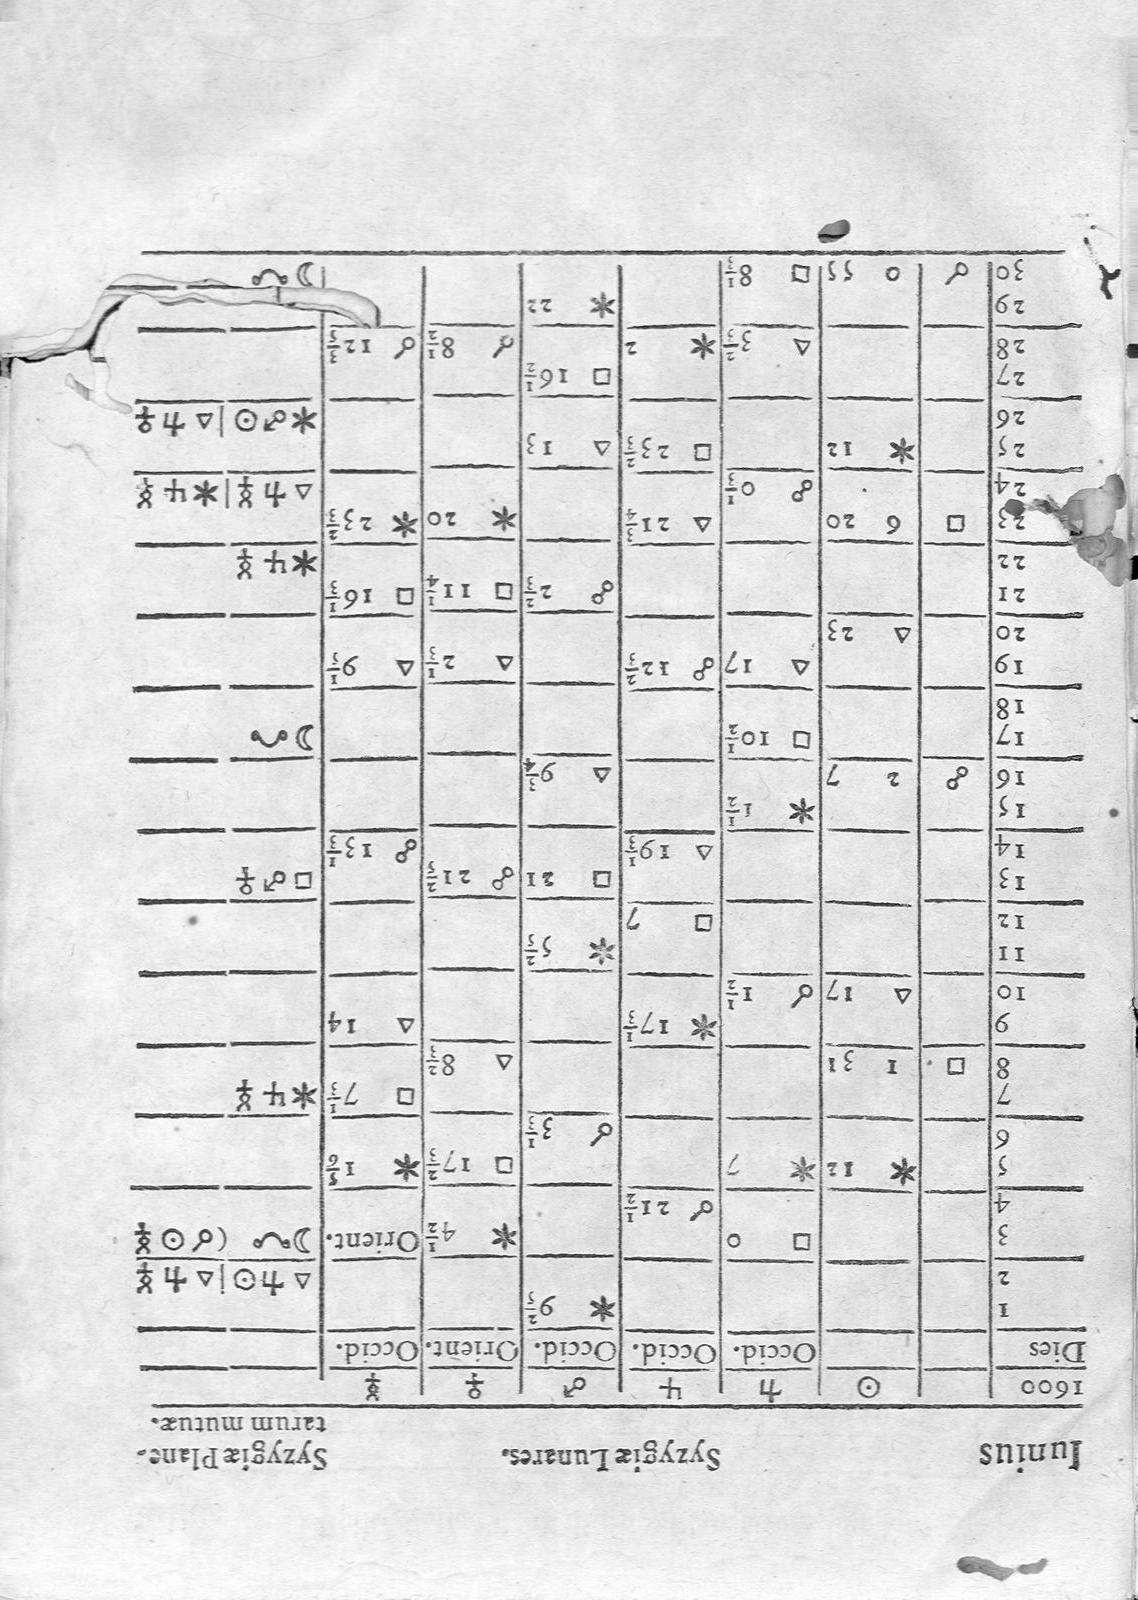 Iunius Syzygiæ Lunares. Syzygiæ Plane-
tarum mutuæ.
1600 ☉ ♄ ♃ ♂ ♀ ☿
Dies Occid. Occid. Occid. Orient. Occid.
1 ⚹ 9 2/5
2 △ ♄ ☉ | △ ♄ ☿
3 □ 0 ⚹ 4 1/2 Orient. ☽ ☋ (☌ ☉ ☿
4 ☌ 21 1/2
5 ⚹ 12 ⚹ 7 □ 17 2/3 ⚹ 1 5/6
6 ☌ 3 1/3
7 □ 7 1/3 ⚹ ♃ ☿
8 □ 1 31 △ 8 2/3
9 ⚹ 17 1/3 △ 14
10 △ 17 ☌ 1 1/2
11 ⚹ 5 2/5
12 □ 7
13 □ 21 ☍ 21 2/5 □ ♂ ♀
14 △ 19 1/3 ☍ 13 1/3
15 ⚹ 1 1/2
16 ☍ 2 7 △ 9 3/4
17 □ 10 1/2 ☽ ☊
18
19 △ 17 ☍ 12 2/3 △ 2 1/3 △ 9 1/5
20 △ 23
21 ☍ 2 2/3 □ 11 1/4 □ 16 1/3
22 ⚹ ♃ ☿
23 □ 6 20 △ 21 3/4 ⚹ 20 ⚹ 23 2/3
24 ☍ 0 1/3 △ ♄ ☿ | ⚹ ♃ ☿
25 ⚹ 12 □ 23 2/3 △ 13
26 ⚹ ♂ ☉ | △ ♄ ♀
27 □ 16 1/2
28 △ 3 2/3 ⚹ 2 ☌ 8 1/2 ☌ 12 3/5
29 ⚹ 22
30 ☌ 0 55 □ 8 1/3 ☽ ☋